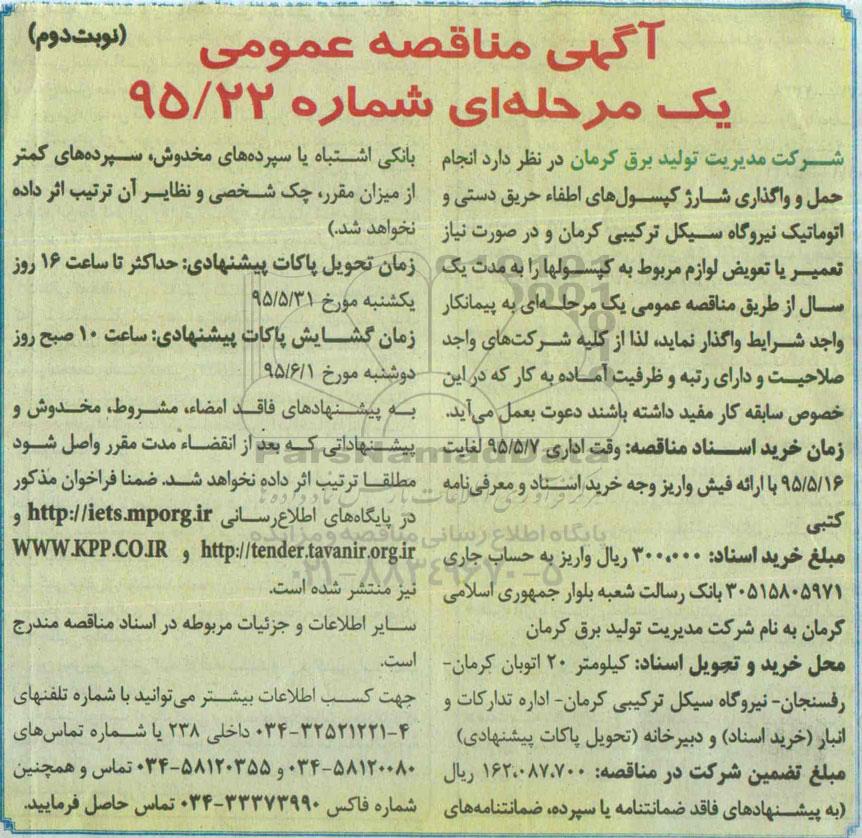 (نوبت دوم)
آگهی مناقصه عمومی
یک مرحله‌ای شماره ۹۵/۲۲
شرکت مدیریت تولید برق کرمان در نظر دارد انجام
حمل و واگذاری شارژ کپسول‌های اطفاء حریق دستی و
اتوماتیک نیروگاه سیکل ترکیبی کرمان و در صورت نیاز
تعمیر یا تعویض لوازم مربوط به کپسولها را به مدت یک
سال از طریق مناقصه عمومی یک مرحله‌ای به پیمانکار
واجد شرایط واگذار نماید، لذا از کلیه شرکت‌های واجد
صلاحیت و دارای رتبه و ظرفیت آماده به کار که در این
خصوص سابقه کار مفید داشته باشند دعوت بعمل می‌آید.
زمان خرید اسناد مناقصه: وقت اداری ۹۵/۵/۷ لغایت
۹۵/۵/۱۶ با ارائه فیش واریز وجه خرید اسناد و معرفی‌نامه
کتبی
مبلغ خرید اسناد: ۳۰۰,۰۰۰ ریال واریز به حساب جاری
۳۰۵۱۵۸۰۵۹۷۱ بانک رسالت شعبه بلوار جمهوری اسلامی
کرمان به نام شرکت مدیریت تولید برق کرمان
محل خرید و تحویل اسناد: کیلومتر ۲۰ اتوبان کرمان-
رفسنجان- نیروگاه سیکل ترکیبی کرمان- اداره تدارکات و
انبار (خرید اسناد) و دبیرخانه (تحویل پاکات پیشنهادی)
مبلغ تضمین شرکت در مناقصه: ۱۶۲,۰۸۷,۷۰۰ ریال
(به پیشنهادهای فاقد ضمانتنامه یا سپرده، ضمانتنامه‌های
بانکی اشتباه یا سپرده‌های مخدوش، سپرده‌های کمتر
از میزان مقرر، چک شخصی و نظایر آن ترتیب اثر داده
نخواهد شد.)
زمان تحویل پاکات پیشنهادی: حداکثر تا ساعت ۱۶ روز
یکشنبه مورخ ۹۵/۵/۳۱
زمان گشایش پاکات پیشنهادی: ساعت ۱۰ صبح روز
دوشنبه مورخ ۹۵/۶/۱
به پیشنهادهای فاقد امضاء، مشروط، مخدوش و
پیشنهاداتی که بعد از انقضاء مدت مقرر واصل شود
مطلقا ترتیب اثر داده نخواهد شد. ضمنا فراخوان مذکور
در پایگاه‌های اطلاع‌رسانی http://iets.mporg.ir و
http://tender.tavanir.org.ir و WWW.KPP.CO.IR
نیز منتشر شده است.
سایر اطلاعات و جزئیات مربوطه در اسناد مناقصه مندرج
است.
جهت کسب اطلاعات بیشتر می‌توانید با شماره تلفنهای
۰۳۴-۳۲۵۲۱۲۲۱-۴ داخلی ۲۳۸ یا شماره تماس‌های
۰۳۴-۵۸۱۲۰۰۸۰ و ۰۳۴-۵۸۱۲۰۳۵۵ تماس و همچنین
شماره فاکس ۰۳۴-۳۳۳۷۳۹۹۰ تماس حاصل فرمایید.
ParsNamadData
پایگاه اطلاع رسانی مناقصه و مزایده
۰۲۱-۸۸۳۴۹۶۷۰-۵